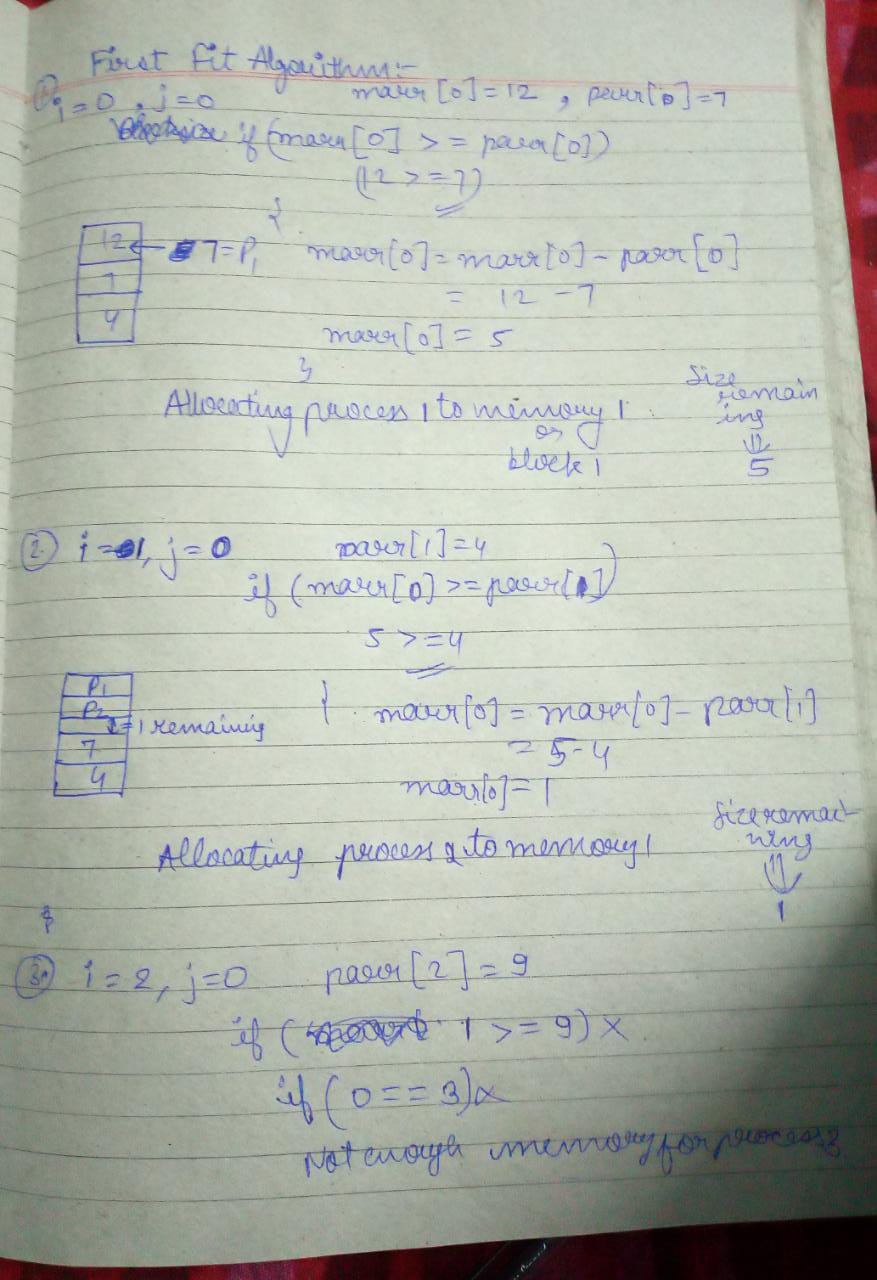 First Fit Algorithm:-
① i=0, j=0 marr[0]=12, parr[0]=7
if (marr[0] >= parr[0])
(12 >= 7)
{
12 ← 7=P1 marr[0]=marr[0]-parr[0]
7 = 12-7
4 marr[0] = 5
}
Allocating process 1 to memory 1
or
block 1
Size
remain
ing
⇓
5
② i=1, j=0 parr[1]=4
if (marr[0] >= parr[1])
5 >= 4
P1 { marr[0] = marr[0] - parr[1]
P2
=1 remainig
7 = 5-4
4 marr[0]=1
Allocating process 2 to memory 1
Size remai-
ning
⇓
1
③ i=2, j=0 parr[2]=9
if ( 1 >= 9) x
if (0 == 3) x
Not enough memory for process